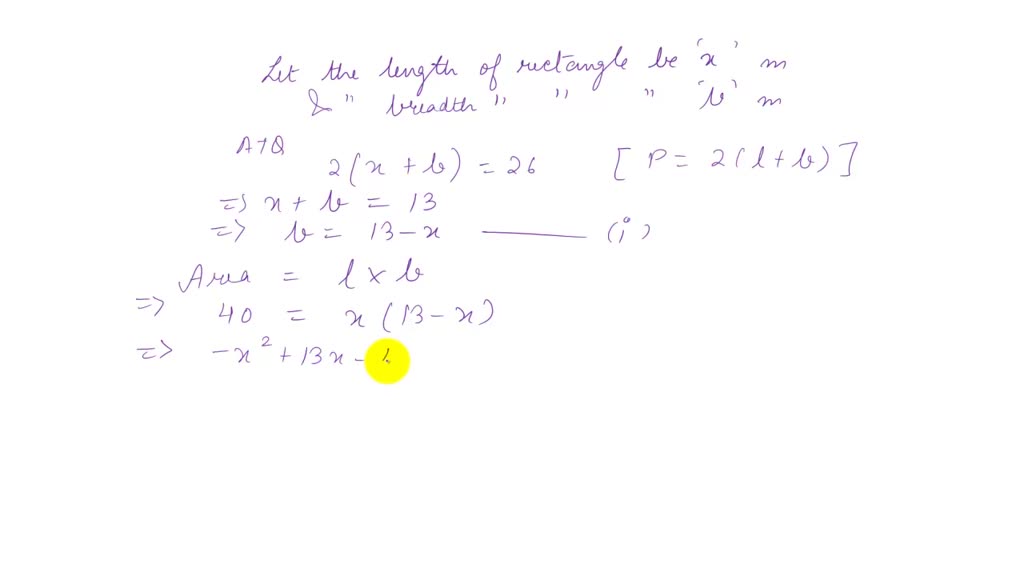 Let the length of rectangle be 'x' m
& " breadth " " " 'b' m
ATQ
2(x + b) = 26 [P = 2(l + b)]
=> x + b = 13
=> b = 13 - x ——— (i)
Area = l × b
=> 40 = x(13 - x)
=> -x² + 13x -